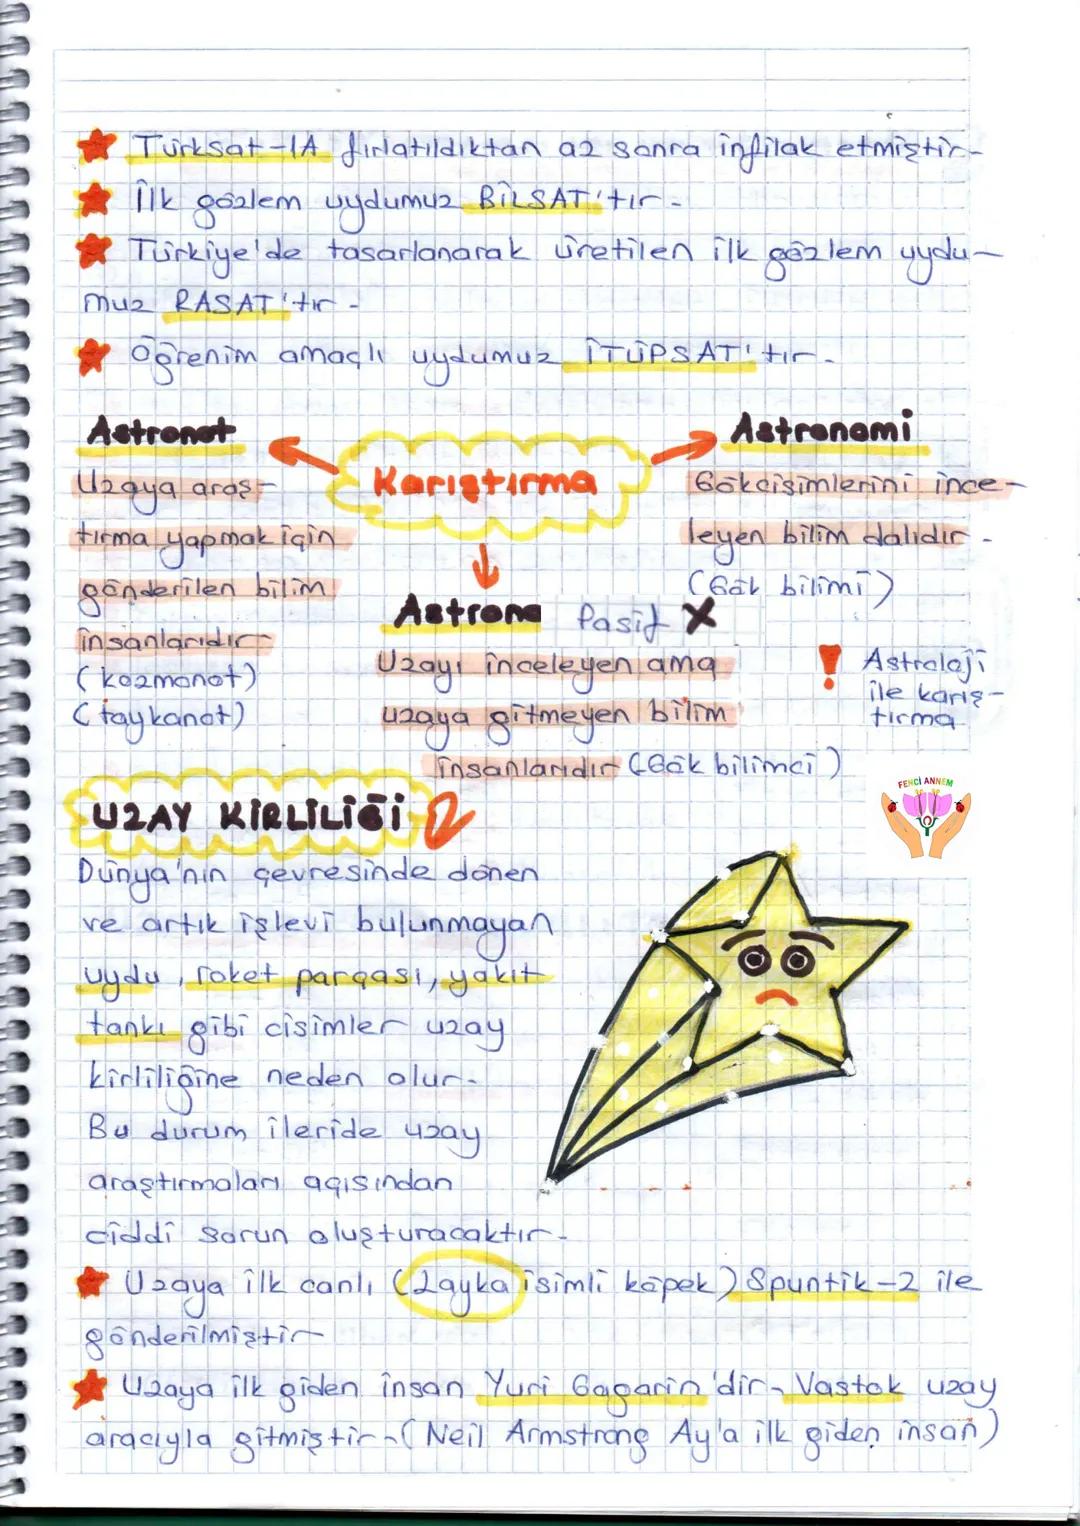 Türksat-1A fırlatıldıktan az sonra infilak etmiştir.
İlk gözlem uydumuz BİLSAT'tır.
Türkiye'de tasarlanarak üretilen ilk gözlem uydu-
muz RASAT'tır.
Öğrenim amaçlı uydumuz İTÜPSAT'tır.
Karıştırma
Astronot
Uzaya araş-
tırma yapmak için
gönderilen bilim
insanlarıdır
(kozmonot)
(taykonot)
Astrono Pasif X
Uzayı inceleyen ama
uzaya gitmeyen bilim
insanlarıdır (Gök bilimci)
Astronomi
Gökcisimlerini ince-
leyen bilim dalıdır.
(Gök bilimi)
! Astroloji
ile karış-
tırma
FENCİ ANNEM
UZAY KİRLİLİĞİ
Dünya'nın çevresinde dönen
ve artık işlevi bulunmayan
uydu, roket parçası, yakıt
tankı gibi cisimler uzay
kirliliğine neden olur.
Bu durum ileride uzay
araştırmaları açısından
ciddi sorun oluşturacaktır.
Uzaya ilk canlı (Layka isimli köpek) Spuntik-2 ile
gönderilmiştir
Uzaya ilk giden insan Yuri Gagarin'dir. Vostok uzay
aracıyla gitmiştir. (Neil Armstrong Ay'a ilk giden insan)